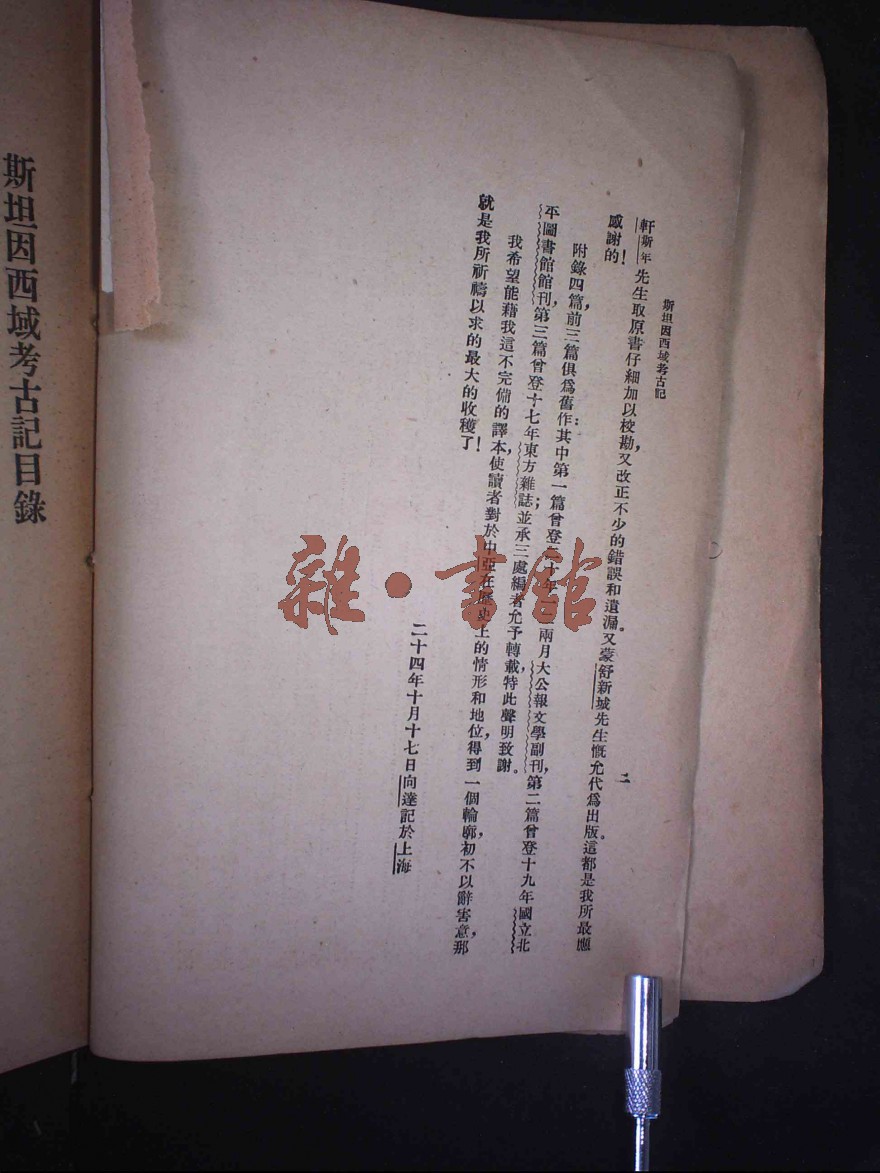 斯坦因西域考古記
二
軒斯年先生取原書仔細加以校勘,又改正不少的錯誤和遺漏。又蒙舒新城先生慨允代爲出版。這都是我所最應
感謝的!
附錄四篇,前三篇俱爲舊作;其中第一篇曾登二十年兩月大公報文學副刊,第二篇曾登十九年國立北
平圖書館館刊,第三篇曾登十七年東方雜誌;並承三處編者允予轉載,特此聲明致謝。
我希望能藉我這不完備的譯本,使讀者對於中亞在歷史上的情形和地位,得到一個輪廓,初不以辭害意,那
就是我所祈禱以求的最大的收穫了!
二十四年十月十七日向達記於上海
斯坦因西域考古記目錄
雜·書館